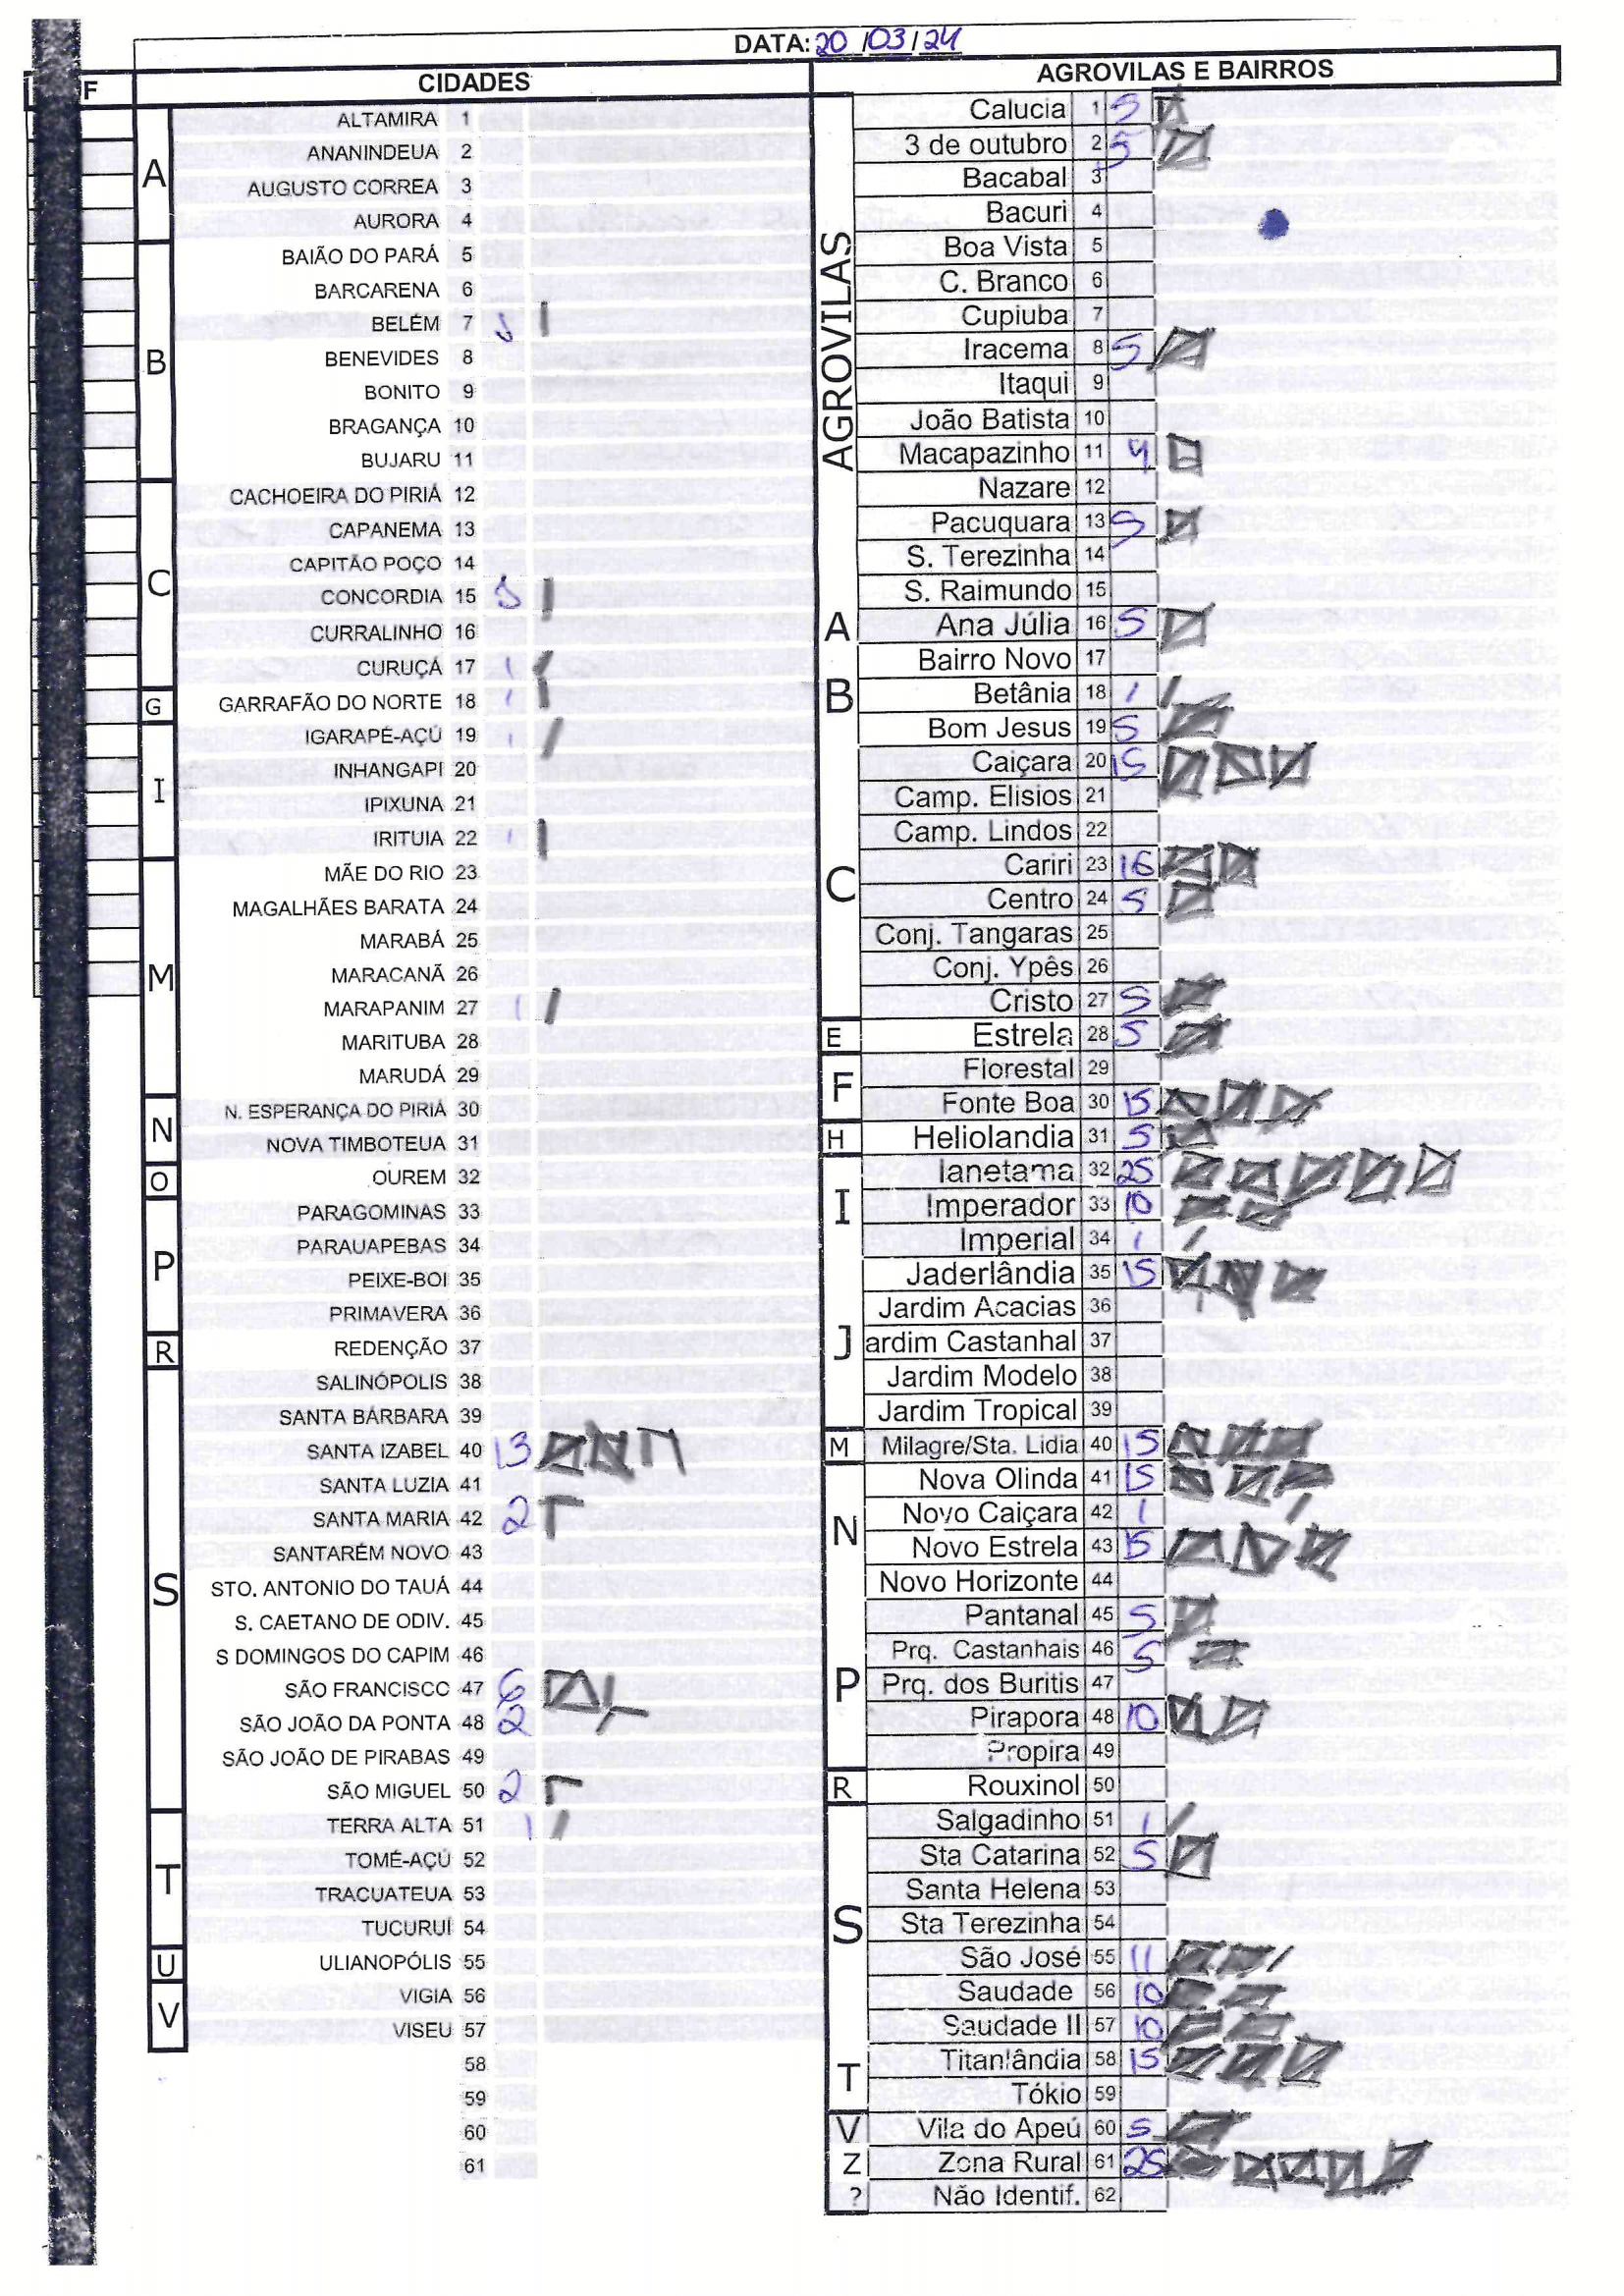 DATA: 20/03/24
F
CIDADES
AGROVILAS E BAIRROS
A
ALTAMIRA 1
ANANINDEUA 2
AUGUSTO CORREA 3
AURORA 4
B
BAIÃO DO PARÁ 5
BARCARENA 6
BELÉM 7
BENEVIDES 8
BONITO 9
BRAGANÇA 10
BUJARU 11
C
CACHOEIRA DO PIRIÁ 12
CAPANEMA 13
CAPITÃO POÇO 14
CONCORDIA 15
CURRALINHO 16
CURUÇÁ 17 1
G
GARRAFÃO DO NORTE 18 1
I
IGARAPÉ-AÇÚ 19 1
INHANGAPI 20
IPIXUNA 21
IRITUIA 22 1
M
MÃE DO RIO 23
MAGALHÃES BARATA 24
MARABÁ 25
MARACANÃ 26
MARAPANIM 27 1
MARITUBA 28
MARUDÁ 29
N
N. ESPERANÇA DO PIRIÁ 30
NOVA TIMBOTEUA 31
O
OUREM 32
P
PARAGOMINAS 33
PARAUAPEBAS 34
PEIXE-BOI 35
PRIMAVERA 36
R
REDENÇÃO 37
S
SALINÓPOLIS 38
SANTA BÁRBARA 39
SANTA IZABEL 40 13
SANTA LUZIA 41
SANTA MARIA 42 2
SANTARÉM NOVO 43
STO. ANTONIO DO TAUÁ 44
S. CAETANO DE ODIV. 45
S DOMINGOS DO CAPIM 46
SÃO FRANCISCO 47 6
SÃO JOÃO DA PONTA 48 2
SÃO JOÃO DE PIRABAS 49
SÃO MIGUEL 50 2
T
TERRA ALTA 51 1
TOMÉ-AÇÚ 52
TRACUATEUA 53
TUCURUI 54
U
ULIANOPÓLIS 55
V
VIGIA 56
VISEU 57
58
59
60
61
AGROVILAS
Calucia 1 5
3 de outubro 2 5
Bacabal 3
Bacuri 4
Boa Vista 5
C. Branco 6
Cupiuba 7
Iracema 8 5
Itaqui 9
João Batista 10
Macapazinho 11 4
Nazare 12
Pacuquara 13 5
S. Terezinha 14
S. Raimundo 15
A
Ana Júlia 16 5
Bairro Novo 17
B
Betânia 18 1
Bom Jesus 19 5
Caiçara 20 15
Camp. Elisios 21
Camp. Lindos 22
C
Cariri 23 16
Centro 24 5
Conj. Tangaras 25
Conj. Ypês 26
Cristo 27 5
E
Estrela 28 5
F
Florestal 29
Fonte Boa 30 15
H
Heliolandia 31 5
I
Ianetama 32 25
Imperador 33 10
Imperial 34 1
J
Jaderlândia 35 15
Jardim Acacias 36
ardim Castanhal 37
Jardim Modelo 38
Jardim Tropical 39
M
Milagre/Sta. Lidia 40 15
N
Nova Olinda 41 15
Novo Caiçara 42 1
Novo Estrela 43 15
Novo Horizonte 44
P
Pantanal 45 5
Prq. Castanhais 46 5
Prq. dos Buritis 47
Pirapora 48 10
Propira 49
R
Rouxinol 50
S
Salgadinho 51 1
Sta Catarina 52 5
Santa Helena 53
Sta Terezinha 54
São José 55 11
Saudade 56 10
Saudade II 57 10
T
Titanlândia 58 15
Tókio 59
V
Vila do Apeú 60 5
Z
Zona Rural 61 25
?
Não Identif. 62